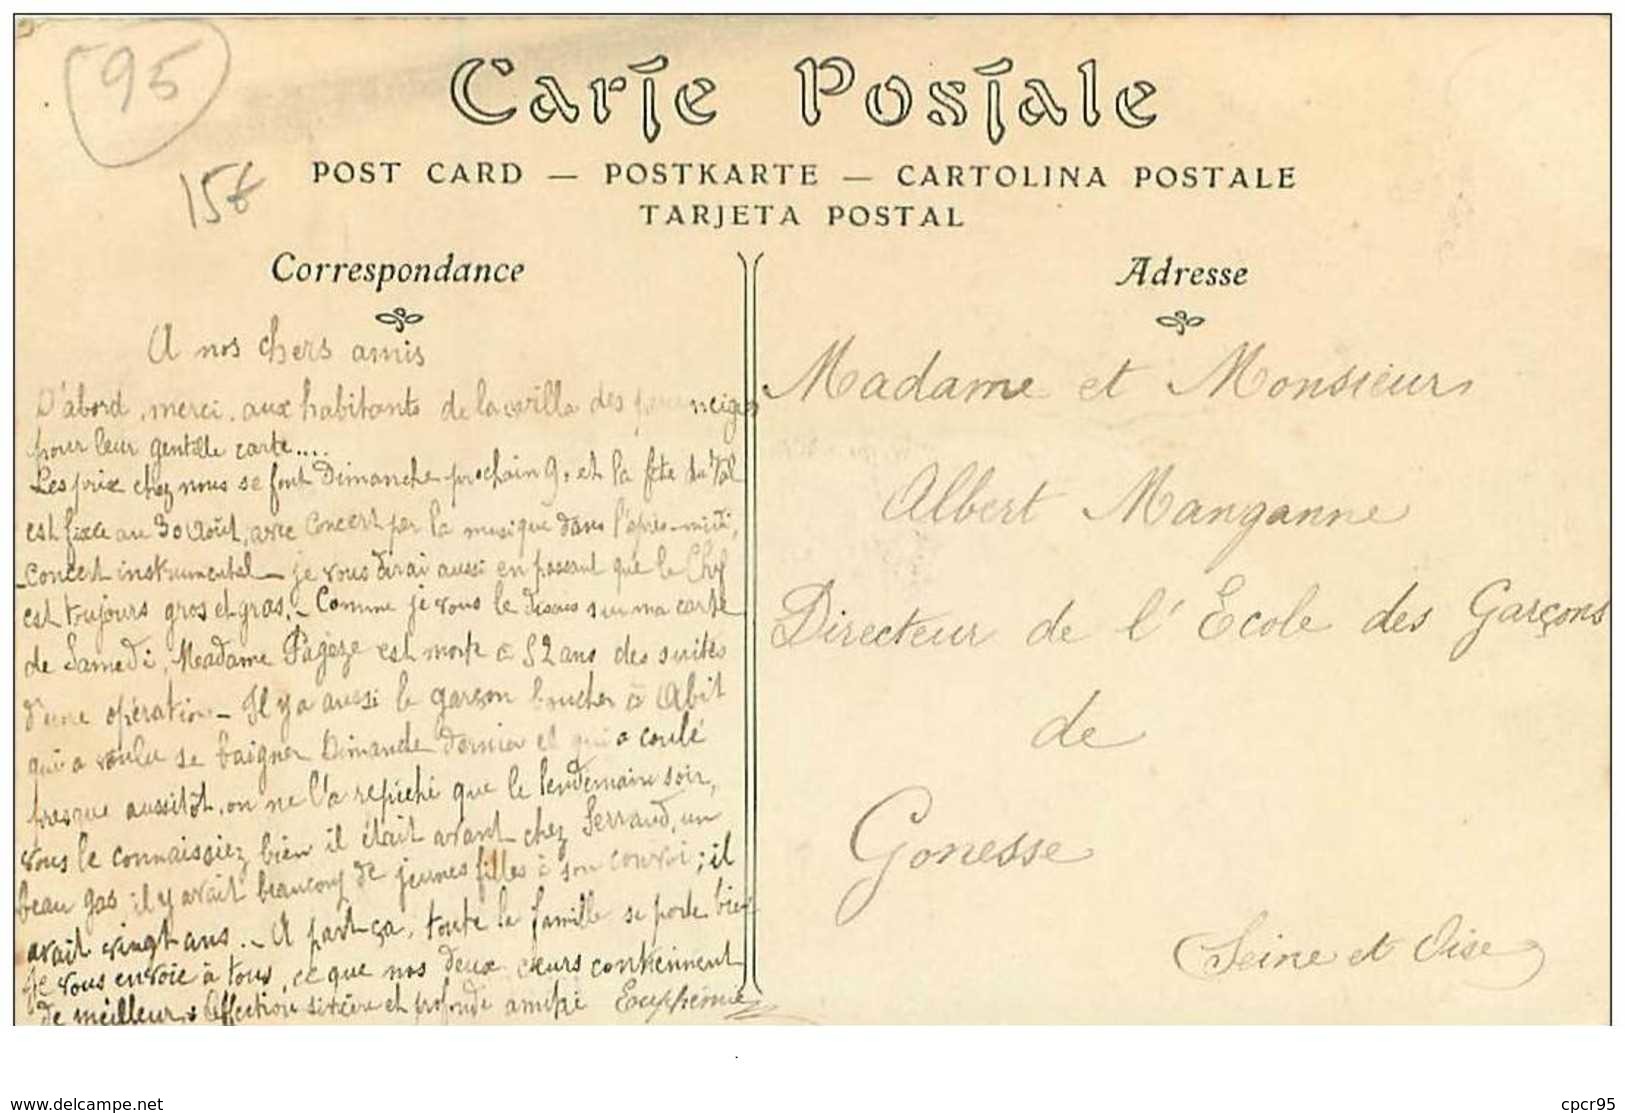 95
15€
Carte Postale
POST CARD — POSTKARTE — CARTOLINA POSTALE
TARJETA POSTAL
Correspondance
A nos chers amis
D'abord, merci, aux habitants de la villa des neiges
pour leur gentille carte....
Les prix chez nous se font Dimanche prochain 9, et la fête du Val
est fixée au 30 Août, avec Concert par la musique dans l'après-midi,
concert instrumental – je vous dirai aussi en passant que le Chef
est toujours gros et gras. – Comme je vous le disais sur ma carte
de Samedi, Madame Pagèze est morte à 52 ans des suites
d'une opération – Il y a aussi le garçon boucher à Abit
qui a voulu se baigner Dimanche dernier et qui a coulé
presque aussitôt, on ne l'a repêché que le lendemain soir,
vous le connaissiez bien il était avant chez Serraud, un
beau gas il y avait beaucoup de jeunes filles à son convoi ; il
avait vingt ans. – A part ça, toute la famille se porte bien
Je vous envoie à tous, ce que nos deux cœurs contiennent
de meilleur, Affection sincère et profonde amitié Euphémie
Adresse
Madame et Monsieur
Albert Manganne
Directeur de l'Ecole des Garçons
de
Gonesse
Seine et Oise
www.delcampe.net
cpcr95